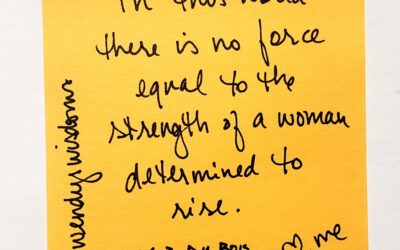 In this world
there is no force
equal to the
strength of a woman
determined to
rise.
Du Bois
♡ me
wendyswisdoms